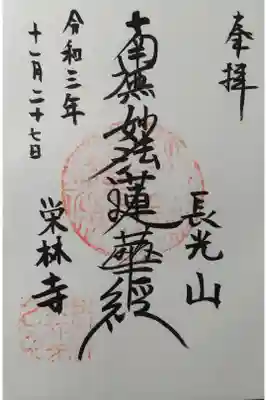 奉拝
長光山
南無妙法蓮華経
栄林寺
令和三年
十一月二十七日